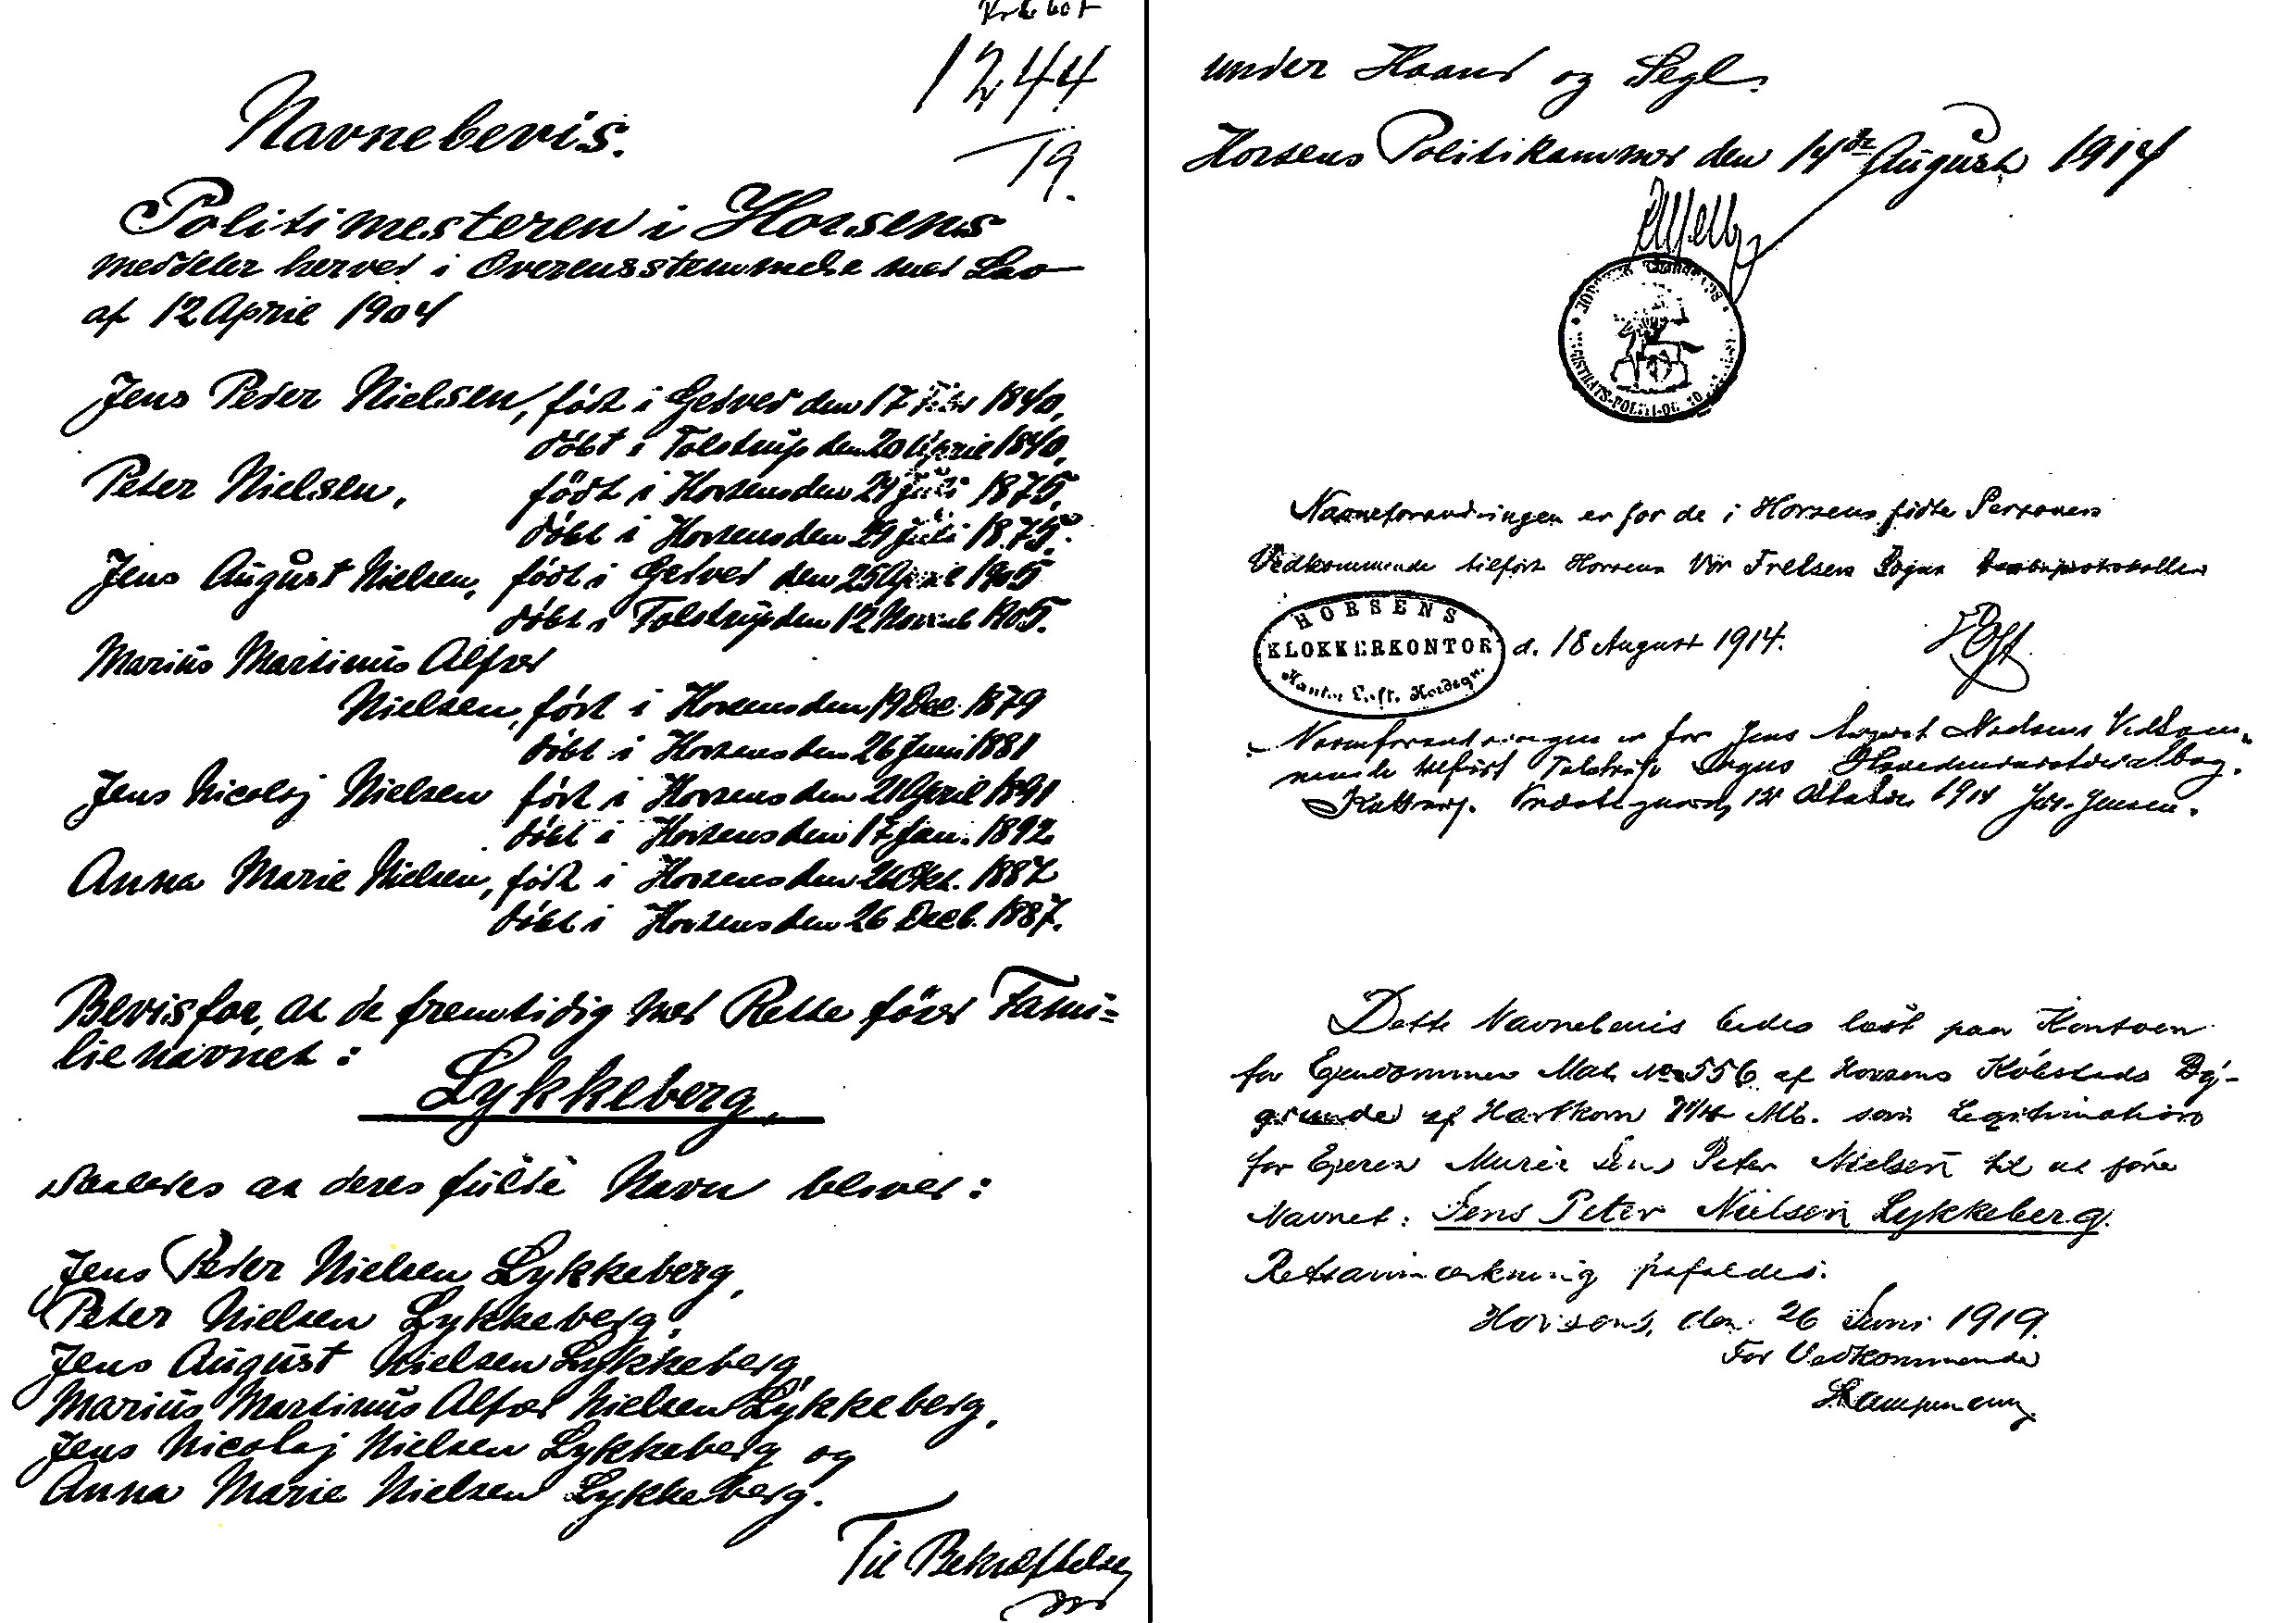 1244
19.
Navnebevis.
Politimesteren i Horsens
meddeler herved i Overensstemmelse med Lov
af 12 April 1904
Jens Peter Nielsen, født i Gedved den 17 Febr 1840,
døbt i Tolstrup den 20 April 1840,
Peter Nielsen, født i Horsens den 24 Juli 1875,
døbt i Horsens den 29 Juli 1875.
Jens August Nielsen, født i Gedved den 25 April 1905
døbt i Tolstrup den 12 Novemb 1905.
Marius Martinus Alfred
Nielsen, født i Horsens den 19 Dec. 1879
døbt i Horsens den 26 Juni 1881
Jens Nicolaj Nielsen født i Horsens den 21 April 1891
døbt i Horsens den 17 Jan. 1892
Anna Marie Nielsen, født i Horsens den Okt. 1887
døbt i Horsens den 26 Decb. 1887.
Bevis for, at de fremtidig med Rette fører Fami=
lienavnet:
Lykkeberg.
saaledes at deres fulde Navn bliver:
Jens Peter Nielsen Lykkeberg,
Peter Nielsen Lykkeberg,
Jens August Nielsen Lykkeberg,
Marius Martinus Alfred Nielsen Lykkeberg,
Jens Nicolaj Nielsen Lykkeberg og
Anna Marie Nielsen Lykkeberg.
Til Bekræftelse
under Haand og Segl.
Horsens Politikammer den 14de August 1914
Navneforandringen er for de i Horsens fødte Personers
Vedkommende tilført Horsens Vor Frelsers Sogns
HORSENS
KLOKKERKONTOR
d. 18 August 1914.
Navneforandringen er for Jens August Nielsens Vedkom-
mende tilført Tolstrup Sogns Hovedministerialbog.
Præstegaard, 12 Oktober 1914 Jensen.
Dette Navnebevis bedes læst paa Kontoen
for Ejendommen Mat. No 556 af Horsens Købstads By-
grunde af Hartkorn Alb. som Legitimation
for Ejeren Murer Jens Peter Nielsen til at føre
Navnet: Jens Peter Nielsen Lykkeberg.
Retsanmærkning frafaldes.
Horsens, den 26 Juni 1919.
For Vedkommende
Kampmann